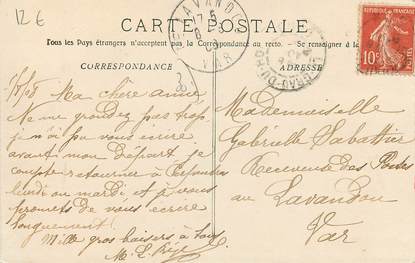 12 €
CARTE POSTALE
Tous les Pays étrangers n'acceptent pas la Correspondance au recto. Se renseigner à la
CORRESPONDANCE
ADRESSE
LAVANDOU
VAR
REPUBLIQUE FRANÇAISE
10c
POSTES
Ma chère amie
Ne me grondez pas trop,
je n'ai pu vous écrire
avant mon départ. Je
compte retourner à
lundi ou mardi et je vous
promets de vous écrire
longuement.
Mille gros baisers à tous
Mademoiselle
Gabrielle Sabattier
Receveuse des Postes
au Lavandou
Var